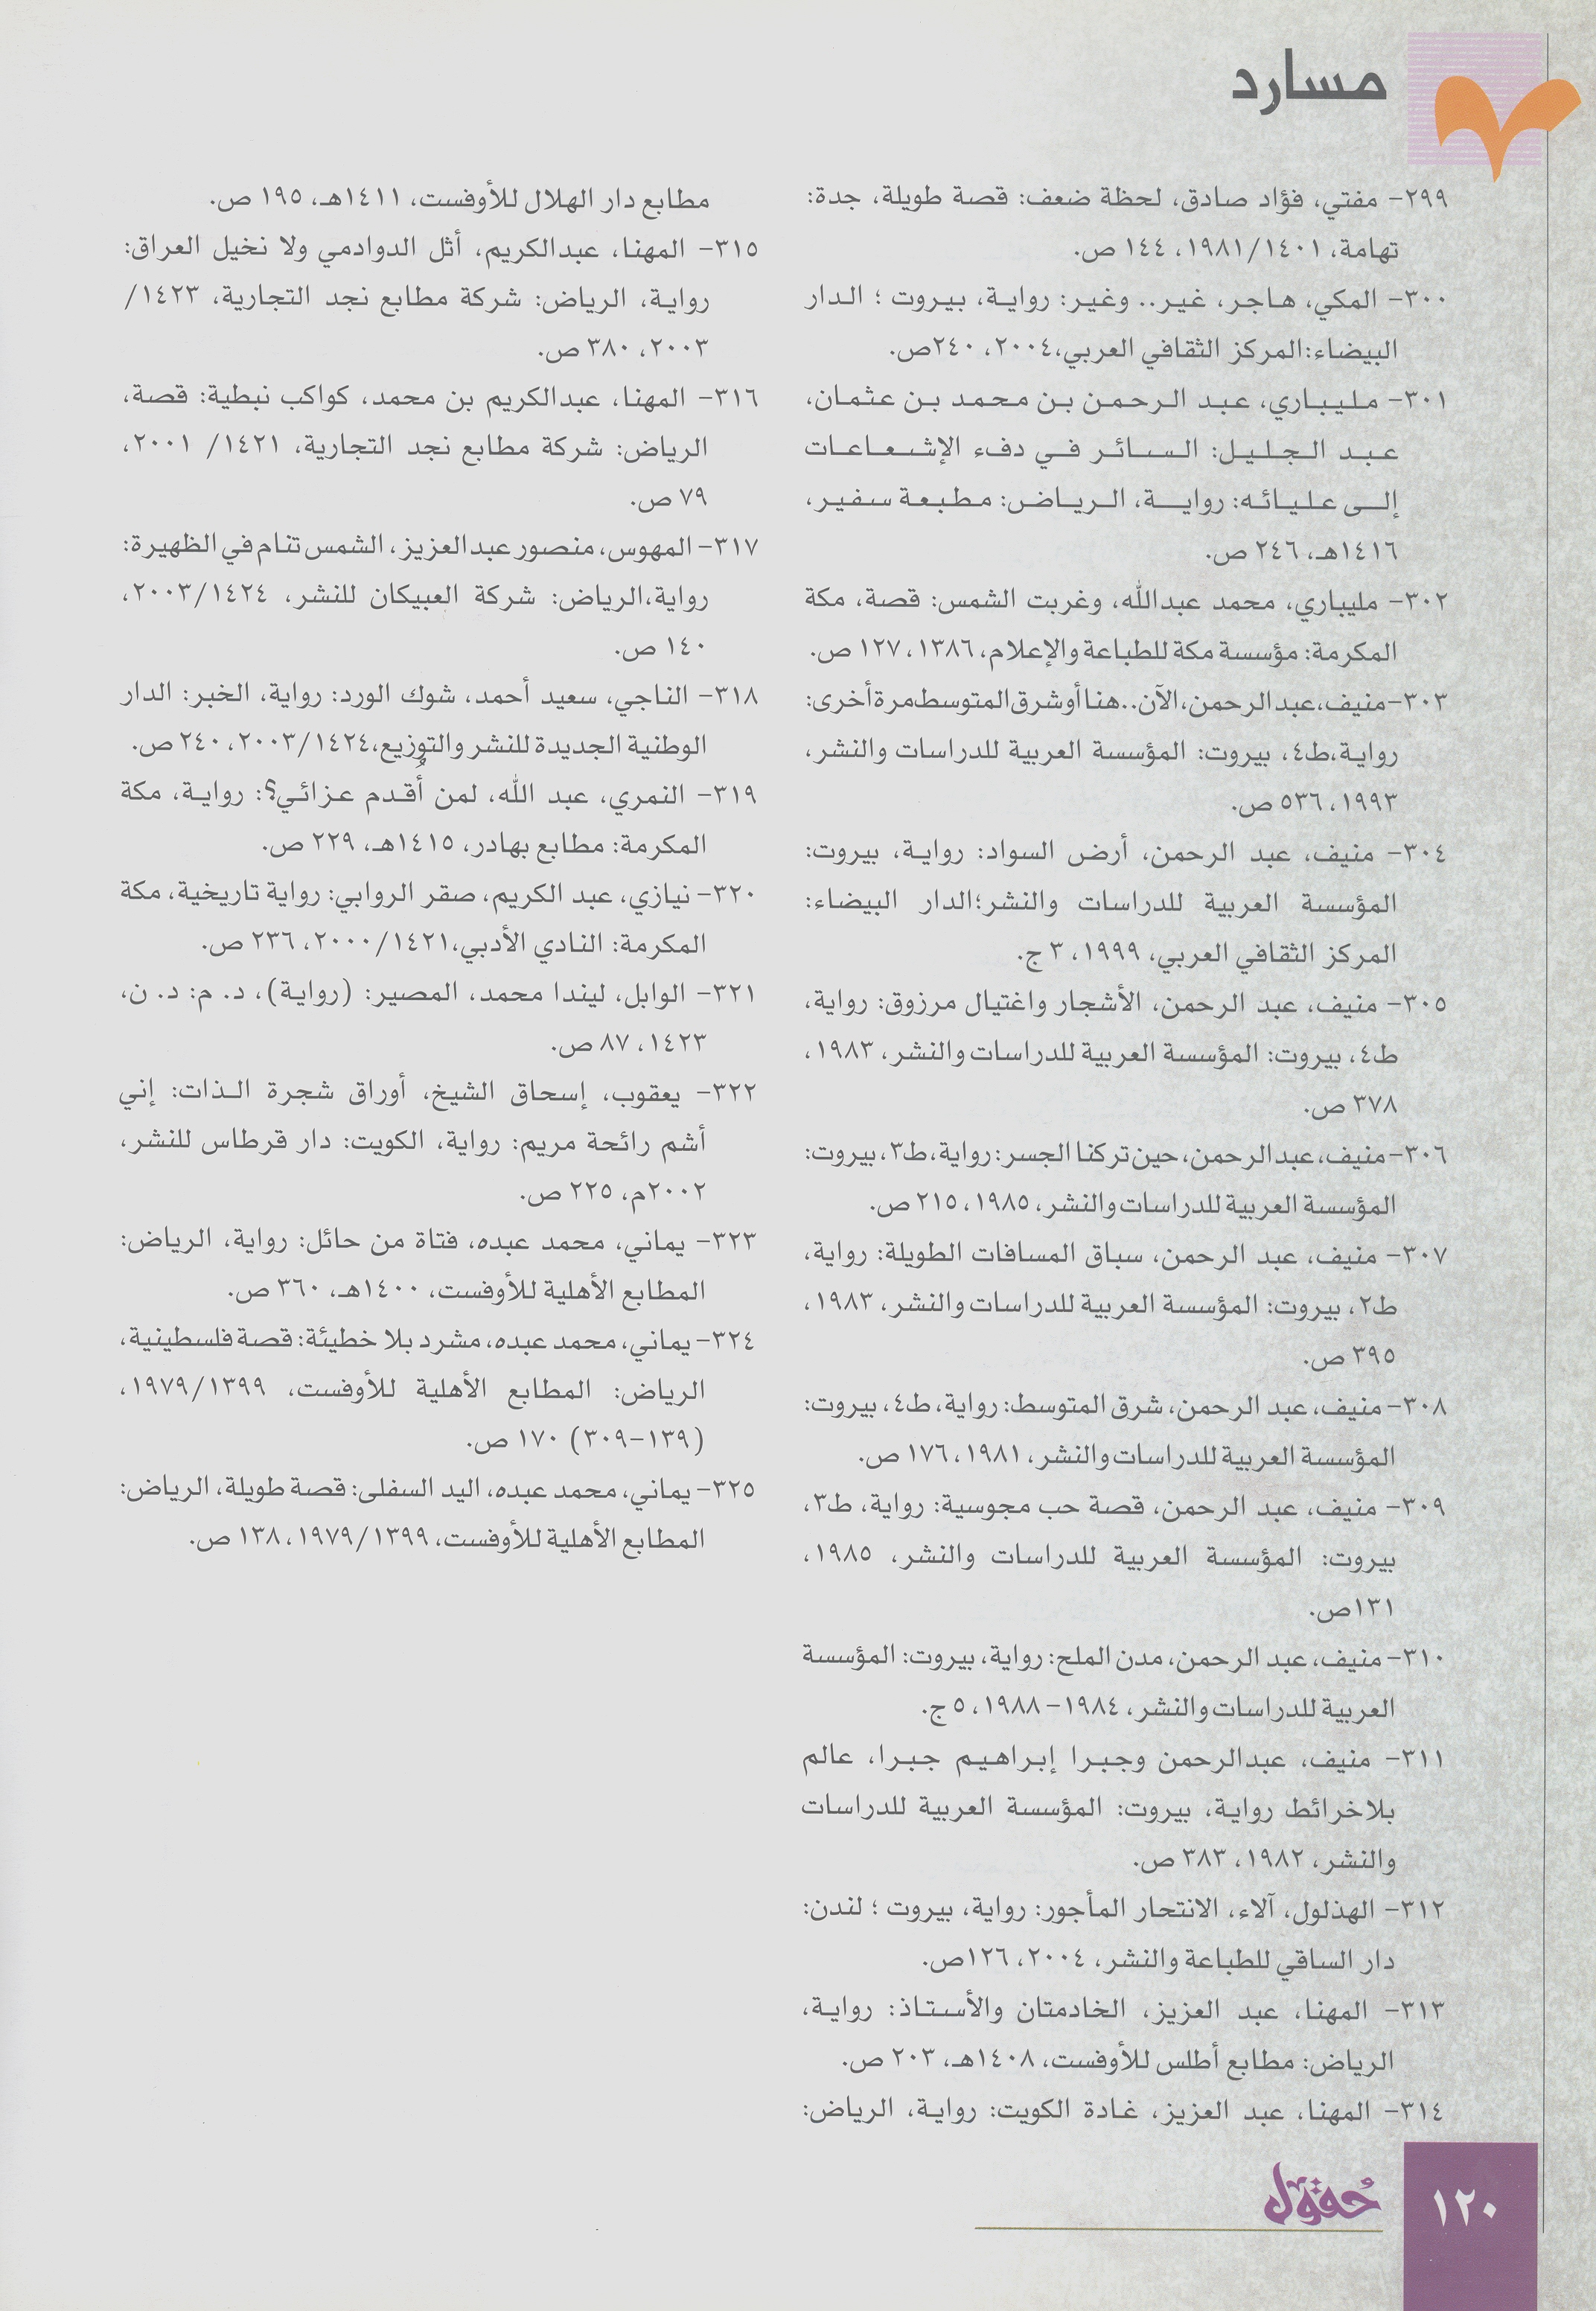 مسارد
٢٩٩- مفتي، فؤاد صادق، لحظة ضعف: قصة طويلة، جدة:
تهامة، ١٩٨١/١٤٠١، ١٤٤ ص.
٣٠٠- المكي، هاجر، غير.. وغير: رواية، بيروت ؛ الدار
البيضاء:المركز الثقافي العربي،٢٠٠٤، ٢٤٠ص.
٣٠١- مليباري، عبد الرحمن بن محمد بن عثمان،
عبد الجليل: السائر في دفء الإشعاعات
إلى عليائه: رواية، الرياض: مطبعة سفير،
١٤١٦هـ، ٢٤٦ ص.
٣٠٢- مليباري، محمد عبدالله، وغربت الشمس: قصة، مكة
المكرمة: مؤسسة مكة للطباعة والإعلام، ١٣٨٦، ١٢٧ ص.
٣٠٣- منيف، عبد الرحمن، الآن.. هنا أو شرق المتوسط مرة أخرى:
رواية،ط٤، بيروت: المؤسسة العربية للدراسات والنشر،
١٩٩٣، ٥٣٦ ص.
٣٠٤- منيف، عبد الرحمن، أرض السواد: رواية، بيروت:
المؤسسة العربية للدراسات والنشر؛الدار البيضاء:
المركز الثقافي العربي، ١٩٩٩، ٣ ج.
٣٠٥- منيف، عبد الرحمن، الأشجار واغتيال مرزوق: رواية،
ط٤، بيروت: المؤسسة العربية للدراسات والنشر، ١٩٨٣،
٣٧٨ ص.
٣٠٦- منيف، عبد الرحمن، حين تركنا الجسر: رواية، ط٣، بيروت:
المؤسسة العربية للدراسات والنشر، ١٩٨٥، ٢١٥ ص.
٣٠٧- منيف، عبد الرحمن، سباق المسافات الطويلة: رواية،
ط٢، بيروت: المؤسسة العربية للدراسات والنشر، ١٩٨٣،
٣٩٥ ص.
٣٠٨- منيف، عبد الرحمن، شرق المتوسط: رواية، ط٤، بيروت:
المؤسسة العربية للدراسات والنشر، ١٩٨١، ١٧٦ ص.
٣٠٩- منيف، عبد الرحمن، قصة حب مجوسية: رواية، ط٣،
بيروت: المؤسسة العربية للدراسات والنشر، ١٩٨٥،
١٣١ص.
٣١٠- منيف، عبد الرحمن، مدن الملح: رواية، بيروت: المؤسسة
العربية للدراسات والنشر، ١٩٨٤- ١٩٨٨، ٥ ج.
٣١١- منيف، عبدالرحمن وجبرا إبراهيم جبرا، عالم
بلاخرائط رواية، بيروت: المؤسسة العربية للدراسات
والنشر، ١٩٨٢، ٣٨٣ ص.
٣١٢- الهذلول، آلاء، الانتحار المأجور: رواية، بيروت ؛ لندن:
دار الساقي للطباعة والنشر، ٢٠٠٤، ١٢٦ص.
٣١٣- المهنا، عبد العزيز، الخادمتان والأستاذ: رواية،
الرياض: مطابع أطلس للأوفست، ١٤٠٨هـ، ٢٠٣ ص.
٣١٤- المهنا، عبد العزيز، غادة الكويت: رواية، الرياض:
مطابع دار الهلال للأوفست، ١٤١١هـ، ١٩٥ ص.
٣١٥- المهنا، عبدالكريم، أثل الدوادمي ولا نخيل العراق:
رواية، الرياض: شركة مطابع نجد التجارية، ١٤٢٣/
٢٠٠٣، ٣٨٠ ص.
٣١٦- المهنا، عبدالكريم بن محمد، كواكب نبطية: قصة،
الرياض: شركة مطابع نجد التجارية، ١٤٢١/ ٢٠٠١،
٧٩ ص.
٣١٧- المهوس، منصور عبد العزيز، الشمس تنام في الظهيرة:
رواية،الرياض: شركة العبيكان للنشر، ٢٠٠٣/١٤٢٤،
١٤٠ ص.
٣١٨- الناجي، سعيد أحمد، شوك الورد: رواية، الخبر: الدار
الوطنية الجديدة للنشر والتوزيع،٢٠٠٣/١٤٢٤، ٢٤٠ ص.
٣١٩- النمري، عبد الله، لمن أُقدم عزائي؟: رواية، مكة
المكرمة: مطابع بهادر، ١٤١٥هـ، ٢٢٩ ص.
٣٢٠- نيازي، عبد الكريم، صقر الروابي: رواية تاريخية، مكة
المكرمة: النادي الأدبي،٢٠٠٠/١٤٢١، ٢٣٦ ص.
٣٢١- الوابل، ليندا محمد، المصير: (رواية)، د. م: د. ن،
١٤٢٣، ٨٧ ص.
٣٢٢- يعقوب، إسحاق الشيخ، أوراق شجرة الذات: إني
أشم رائحة مريم: رواية، الكويت: دار قرطاس للنشر،
٢٠٠٢م، ٢٢٥ ص.
٣٢٣- يماني، محمد عبده، فتاة من حائل: رواية، الرياض:
المطابع الأهلية للأوفست، ١٤٠٠هـ، ٣٦٠ ص.
٣٢٤- يماني، محمد عبده، مشرد بلا خطيئة: قصة فلسطينية،
الرياض: المطابع الأهلية للأوفست، ١٩٧٩/١٣٩٩،
(١٣٩-٣٠٩) ١٧٠ ص.
٣٢٥- يماني، محمد عبده، اليد السفلى: قصة طويلة، الرياض:
المطابع الأهلية للأوفست، ١٩٧٩/١٣٩٩، ١٣٨ ص.
حقول
١٢٠